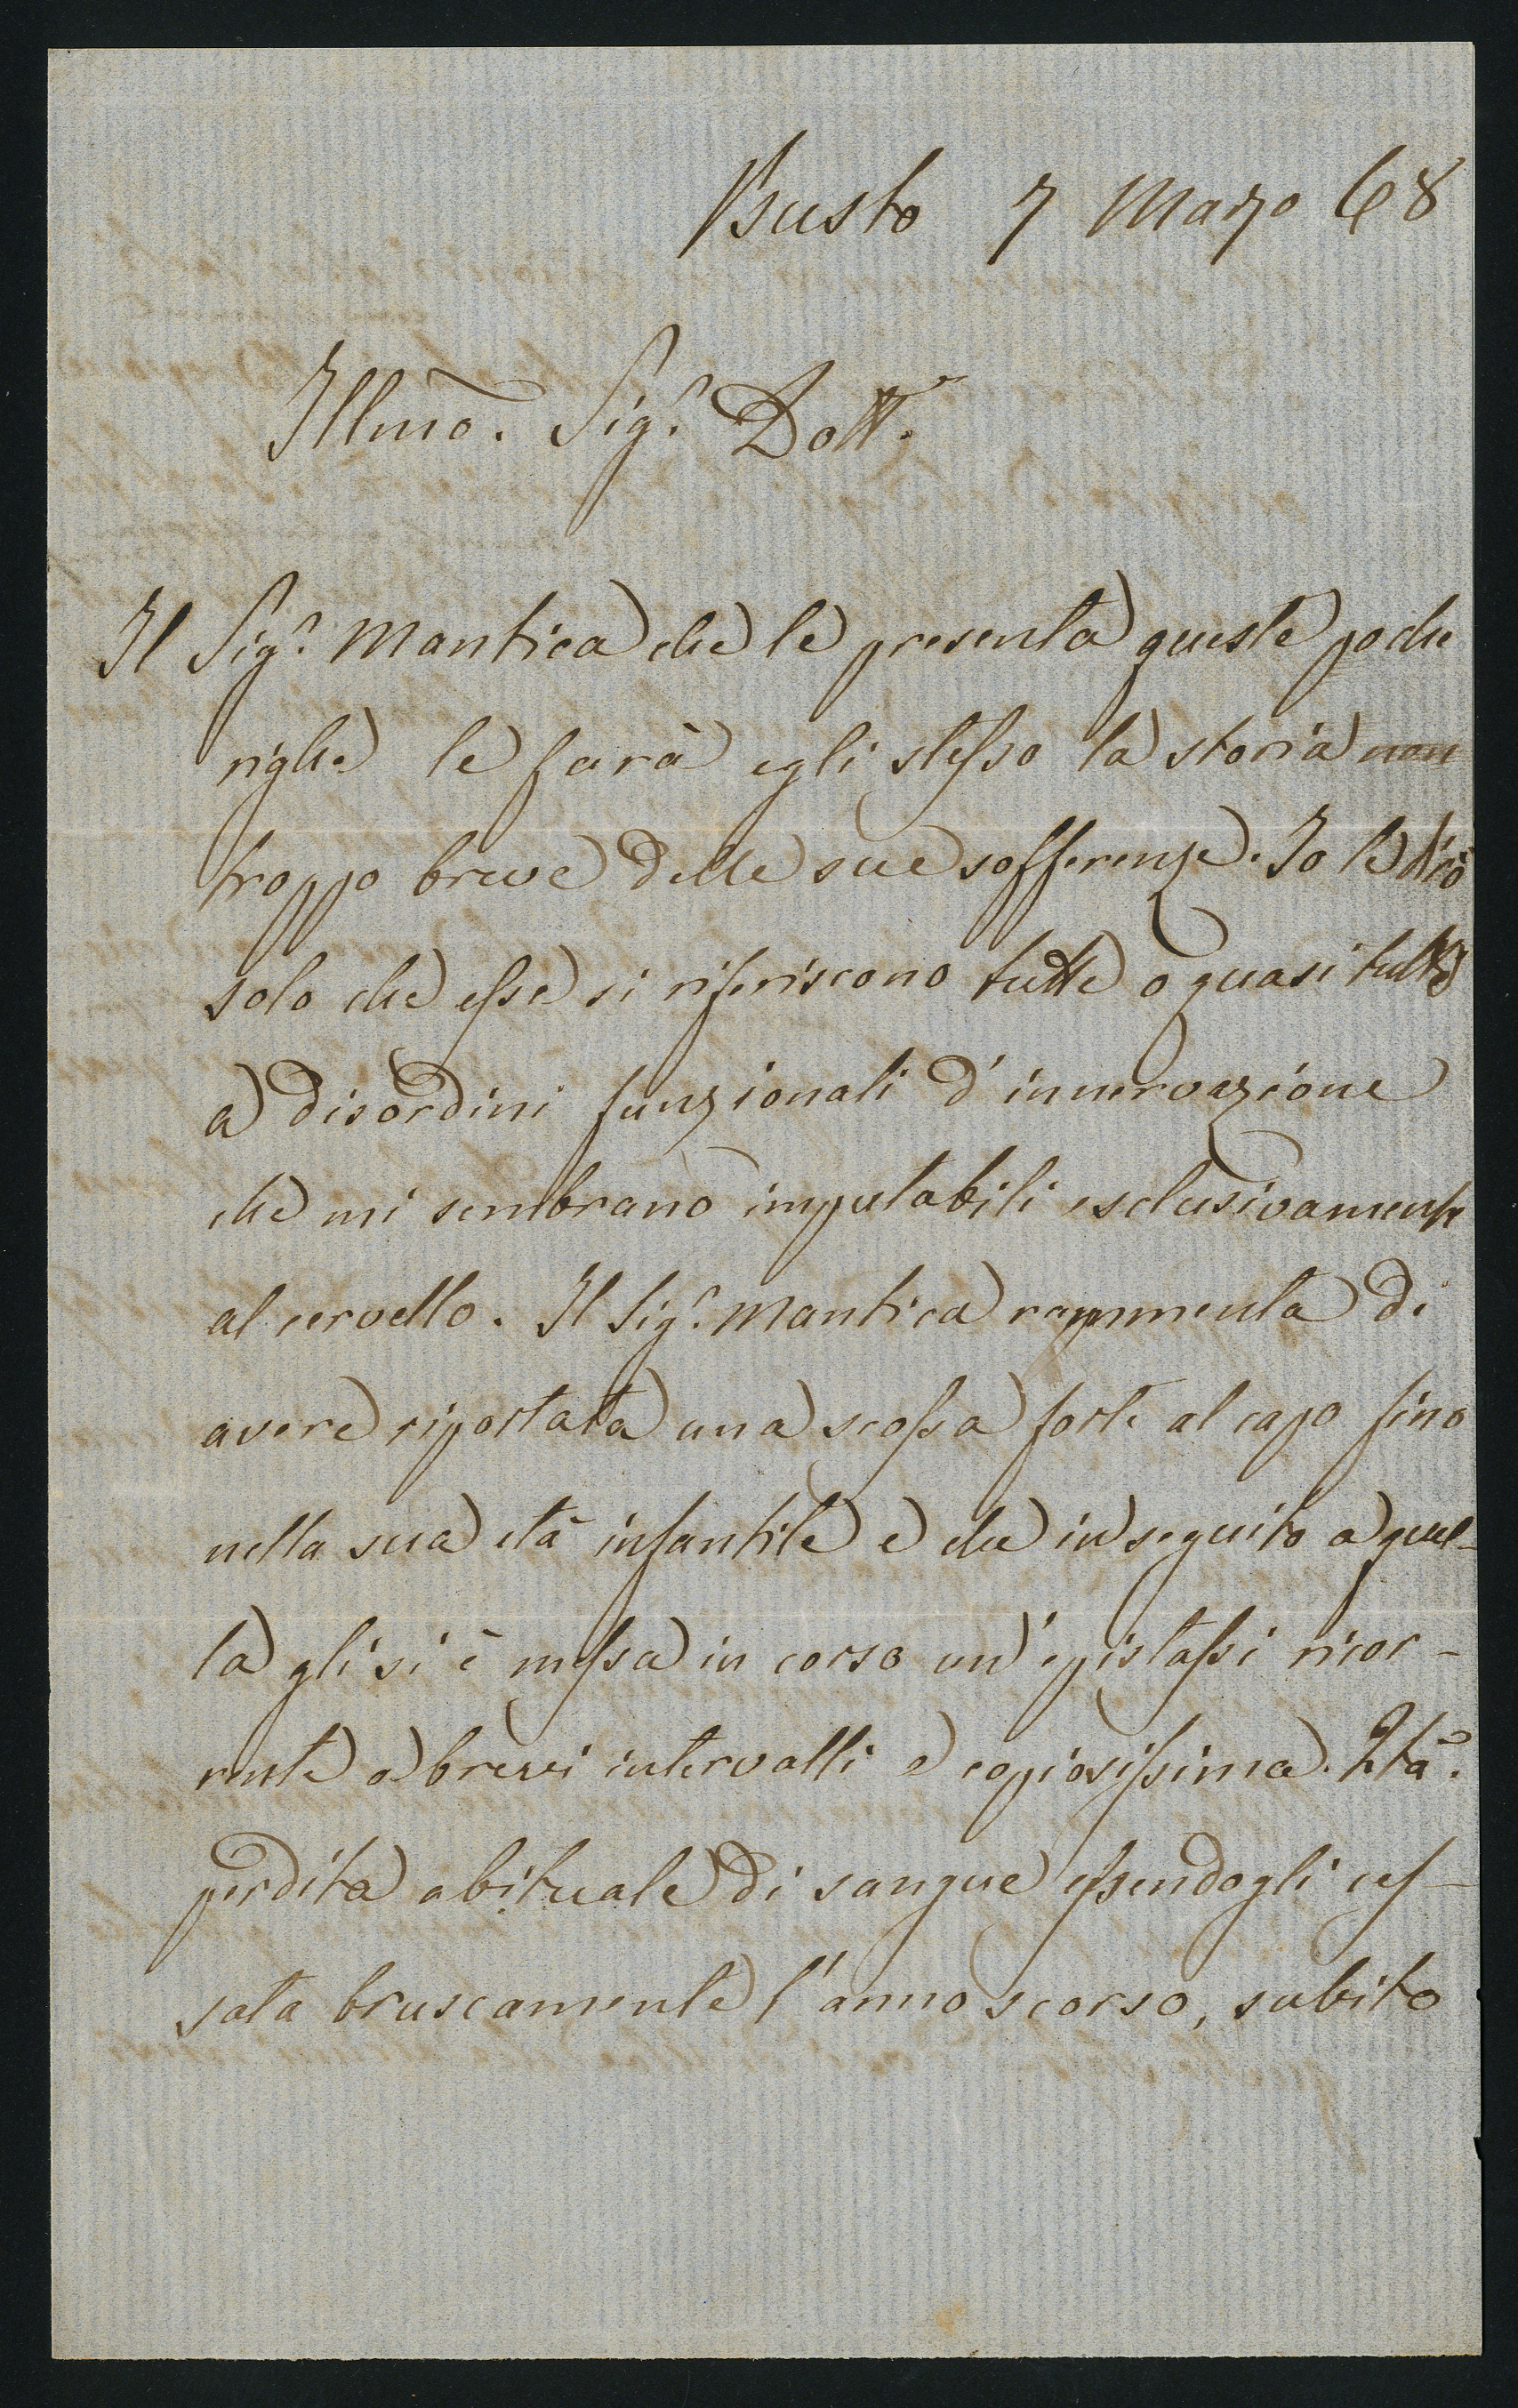 Busto 7 Marzo 68
Illmo. Sigr. Dottr.
Il Sigr. Mantica che le presenta queste poche
righe le farà egli stesso la storia non
troppo breve delle sue sofferenze. Io le dirò
solo che esse si riferiscono tutte o quasi tutte
a disordini funzionali d'innervazione
che mi sembrano imputabili esclusivamente
al cervello. Il Sigr. Mantica rammenta di
avere riportata una scossa forte al capo fino
nella sua età infantile e che in seguito a quel-
la gli si è messa in corso un'epistassi ricor-
rente a brevi intervalli e copiosissima.
perdita abituale di sangue essendogli ces-
sata bruscamente l'anno scorso, subito